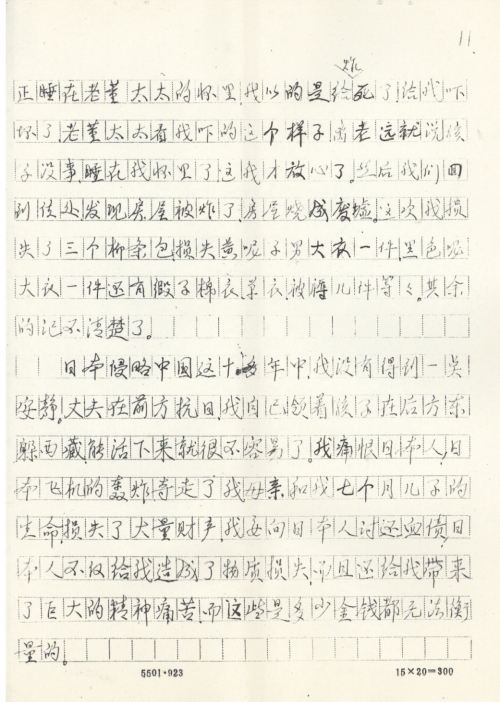 11
炸
正睡在老董太太的怀里,我以的是给死了给我吓
坏了,老董太太看我吓的这个样子离老远就说孩
子没事,睡在我怀里了这我才放心了。然后我们回
到住处发现房屋被炸了,房屋烧成废墟。这次我损
失了三个柳条包,损失黄呢子男大衣一件,黑色呢
大衣一件还有缎子棉衣单衣,被褥几件等々。其余
的记不清楚了。
日本侵略中国这十年中,我没有得到一点
安静。丈夫在前方抗日,我自己领着孩子在后方东
躲西藏能活下来就很不容易了。我痛恨日本人,日
本飞机的轰炸夺走了我母亲和我七个月儿子的
生命,损失了大量财产,我要向日本人讨还血债,日
本人不仅给我造成了物质损失,而且还给我带来
了巨大的精神痛苦,而这些是多少金钱都无法衡
量的。
5501·923
15×20=300